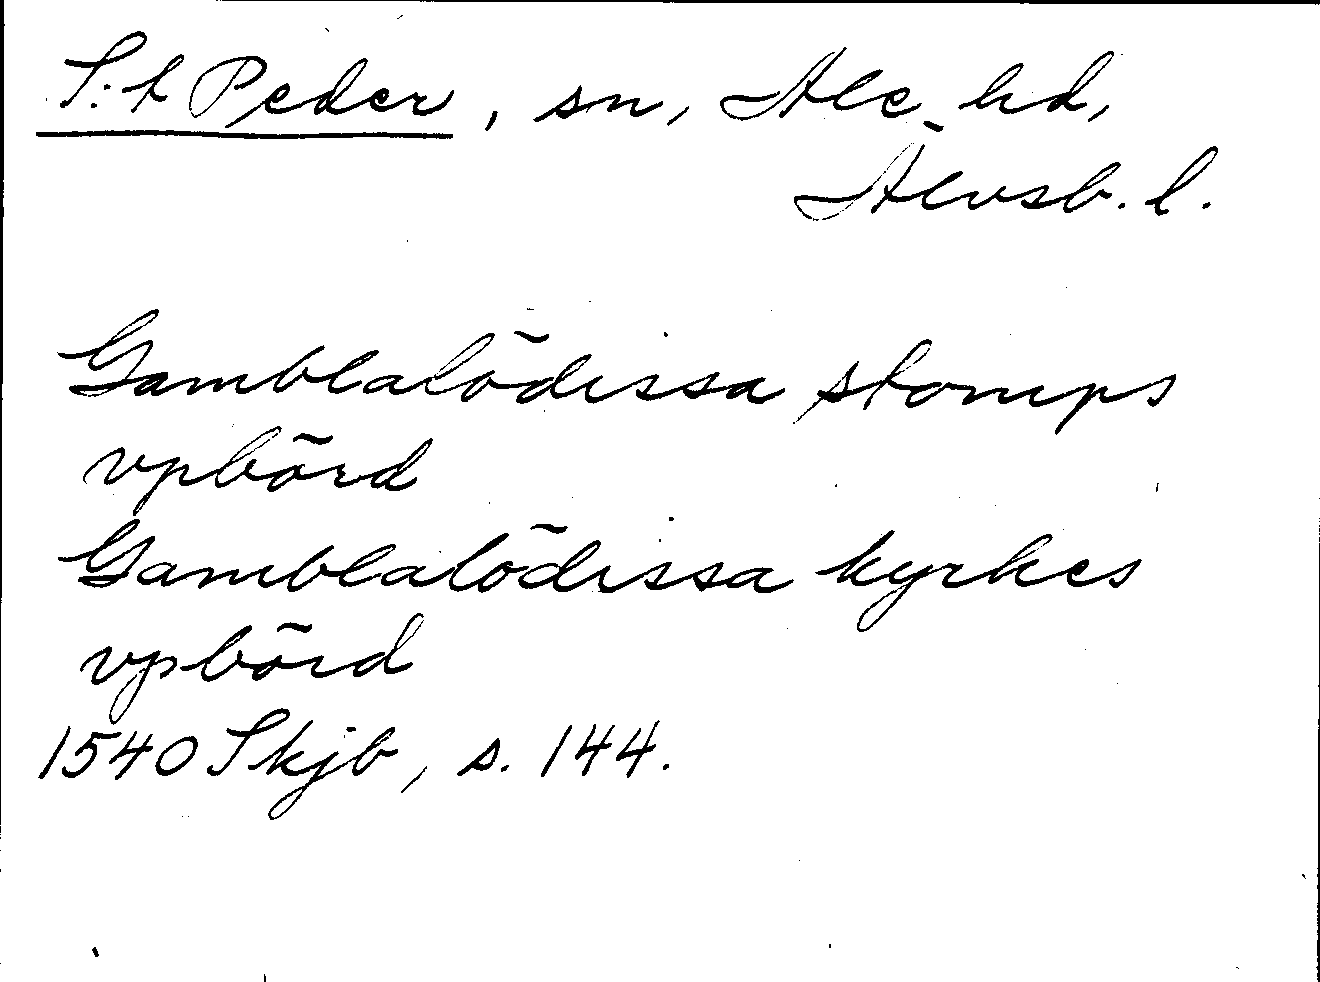 S:t Peder, sn, Ale hd,
Älvsb. l.
Gamblalödissa stomps
vpbörd
Gamblalödissa kyrkes
vpbörd
1540 Skjb, s. 144.